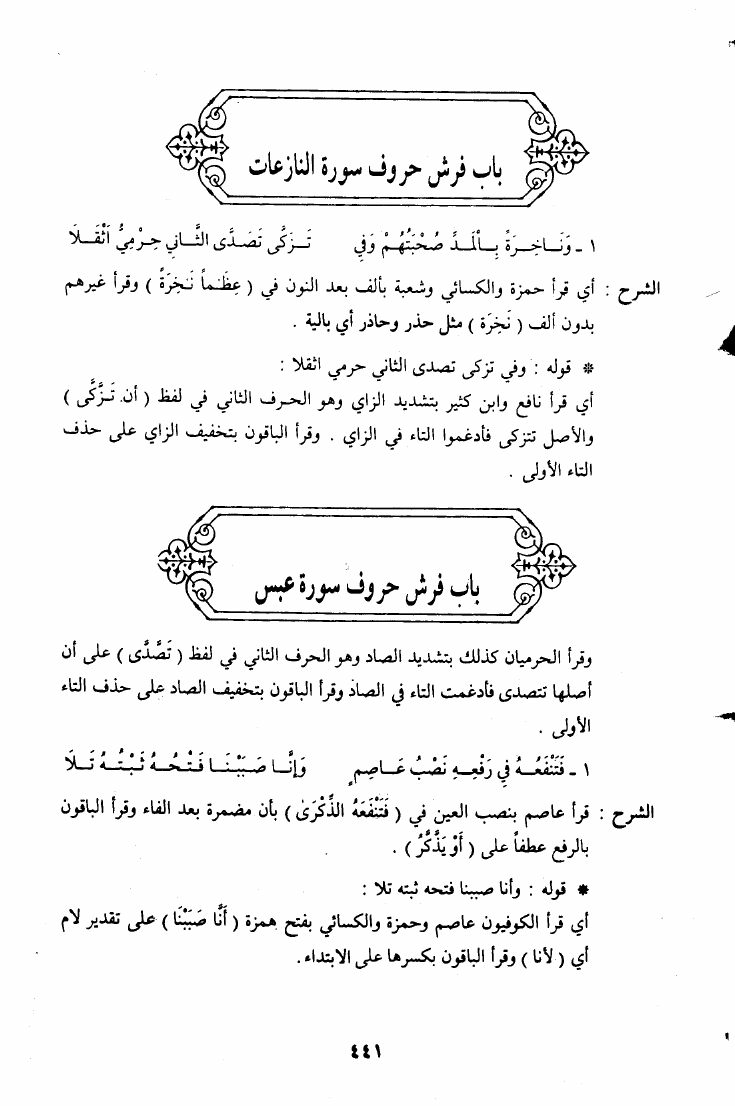 باب فرش حروف سورة النازعات
١ - وَنَـاخِـرَةً بِـالْمَـدِّ صُحْبَتُهُـمْ وَفِي تَـزَكَّى تَصَدَّى الثَّـانِي حِـرْمِيٌّ اثْقَـلَا
الشرح : أي قرأ حمزة والكسائي وشعبة بألف بعد النون في ( عِظَـٰماً نَـٰخِرَةً ) وقرأ غيرهم
بدون ألف ( نَخِرَة ) مثل حذر وحاذر أي بالية .
* قوله : وفي تزكى تصدى الثاني حرمي اثقلا :
أي قرأ نافع وابن كثير بتشديد الزاي وهو الحرف الثاني في لفظ ( أن تَـزَّكَّى )
والأصل تتزكى فأدغموا التاء في الزاي . وقرأ الباقون بتخفيف الزاي على حذف
التاء الأولى .
باب فرش حروف سورة عبس
وقرأ الحرميان كذلك بتشديد الصاد وهو الحرف الثاني في لفظ ( تَصَّدَّى ) على أن
أصلها تتصدى فأدغمت التاء في الصاد وقرأ الباقون بتخفيف الصاد على حذف التاء
الأولى .
١ - فَتَنْفَعُـهُ فِي رَفْعِـهِ نَصْبُ عَـاصِمٍ وَإِنَّـا صَبَبْنَـا فَتْـحُـهُ ثَبْتُـهُ تَـلَا
الشرح : قرأ عاصم بنصب العين في ( فَتَنْفَعَهُ الذِّكْرَىٰ ) بأن مضمرة بعد الفاء وقرأ الباقون
بالرفع عطفاً على ( أَوْ يَذَّكَّرُ ) .
* قوله : وأنا صببنا فتحه ثبته تلا :
أي قرأ الكوفيون عاصم وحمزة والكسائي بفتح همزة ( أَنَّا صَبَبْنَا ) على تقدير لام
أي ( لأنا ) وقرأ الباقون بكسرها على الابتداء .
٤٤١